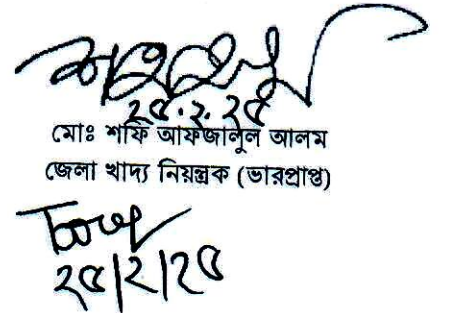 ২৫.২.২৫
মোঃ শফি আফজালুল আলম
জেলা খাদ্য নিয়ন্ত্রক (ভারপ্রাপ্ত)
২৫/২/২৫